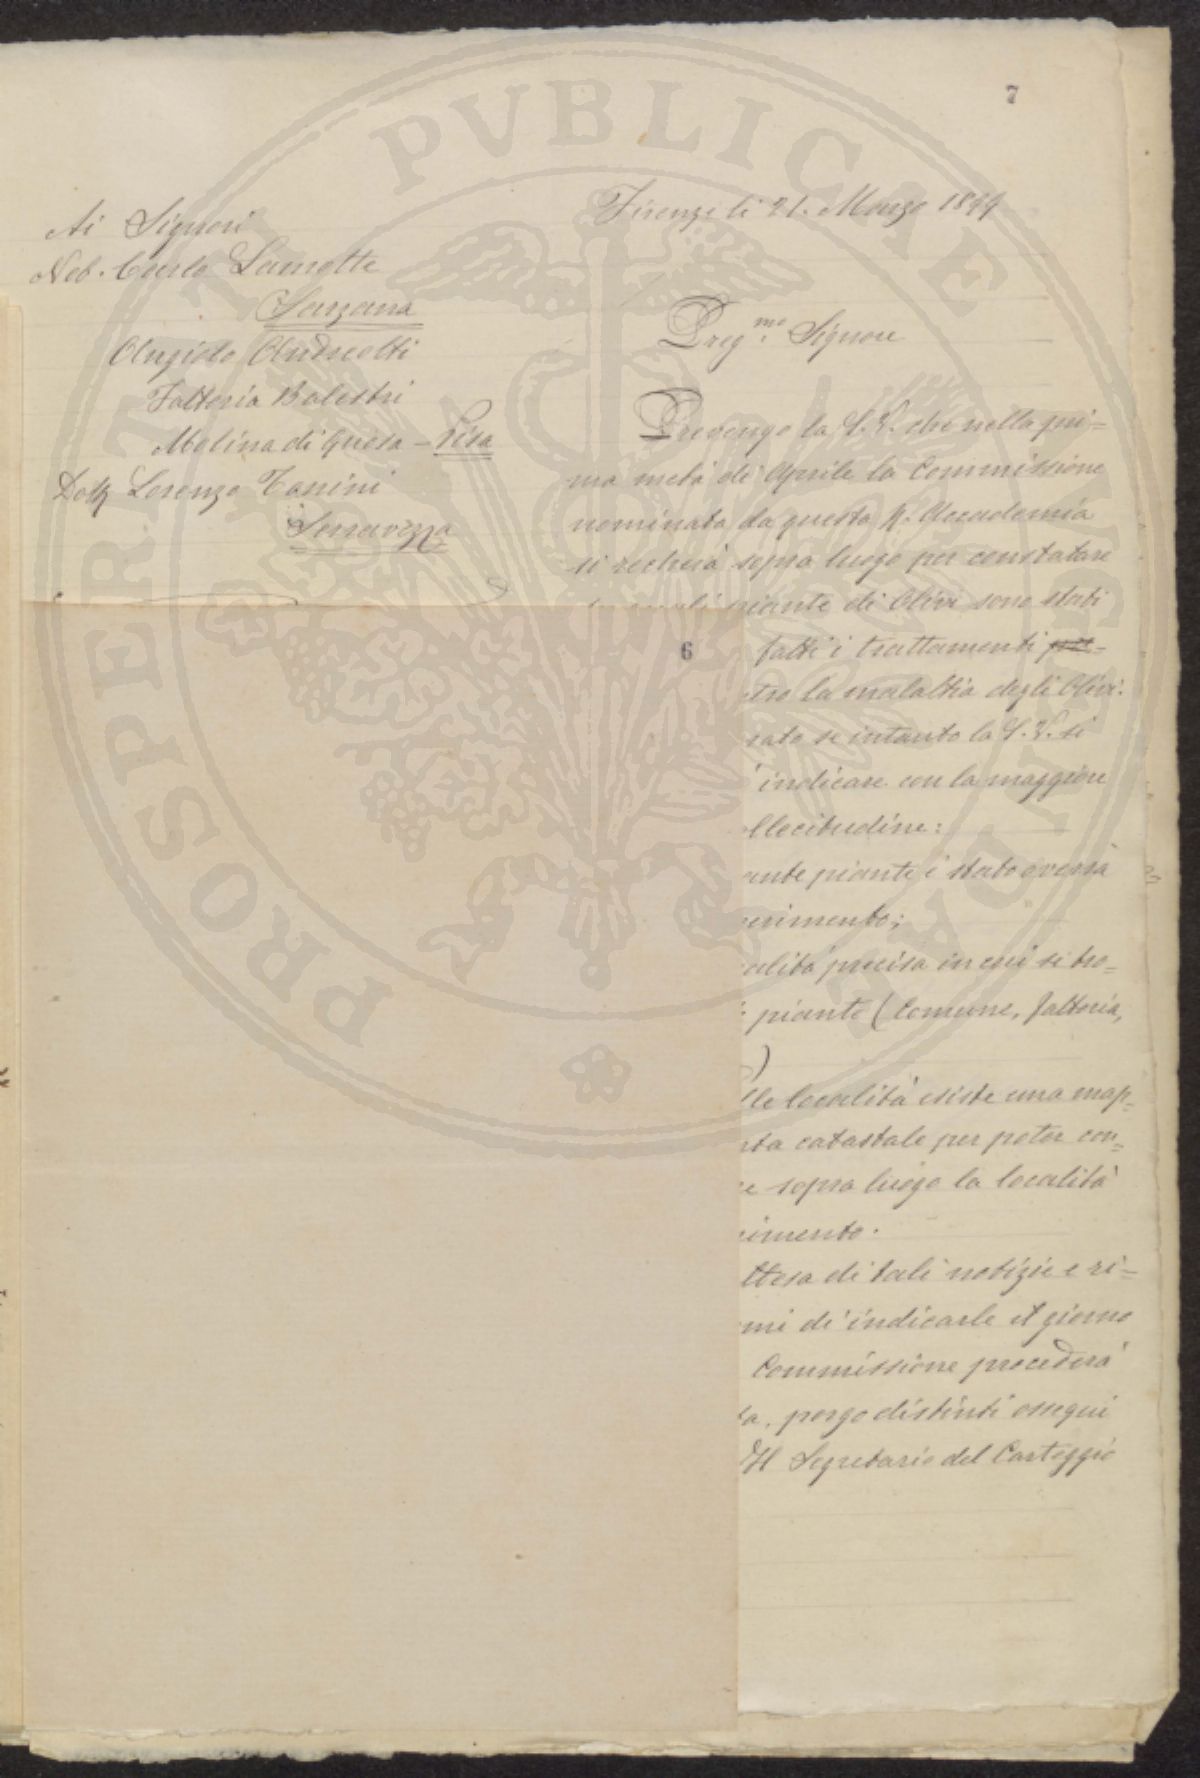 7
Firenze li 21. Marzo 1899
Ai Signori
Nob. Carlo Lamotte
Sarzana
Angiolo Andreotti
Fattoria Balestri
Molina di Quosa - Pisa
Dott Lorenzo Tanini
Serravezza
Preg.mo Signore
Prevengo la S.V. che nella pri=
ma metà di Aprile la Commissione
nominata da questa R. Accademia
si recherà sopra luogo per constatare
piante di Olivi sono stati
fatti i trattamenti
tro la malattia degli Olivi.
rato se intanto la S.V. si
indicare con la maggiore
llecitudine:
ante piante è stato
erimento;
calità precisa in cui si tro=
piante (Comune, fattoria,
)
lle località esiste una map=
rta catastale per poter con=
e sopra luogo la località
rimento.
ttesa di tali notizie e ri=
mi di indicarle il giorno
Commissione procederà
ta, porgo distinti ossequi
Il Segretario del Carteggio
6
PROSPERITATI PVBLICAE AVGENDAE